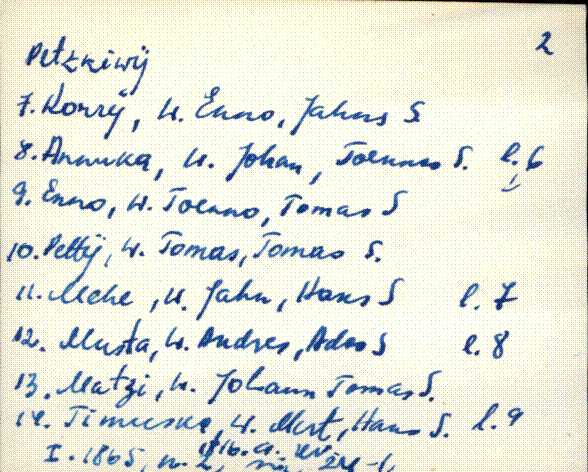 2
Petzkiwij
7. Konrÿ, W. Enno, Jahns S
8. Annuka, W. Johan, Toennos S. l. 6
9. Enno, W. Toenno, Tomas S
10. Pettÿ, W. Tomas, Tomas S.
11. Mehe, W. Jahn, Hans S l. 7
12. Musta, W. Andres, Ados S l. 8
13. Matzi, W. Johann Tomas S.
14. Timuska, W. Mert, Hans S. l. 9
I. 1865, n. 2,